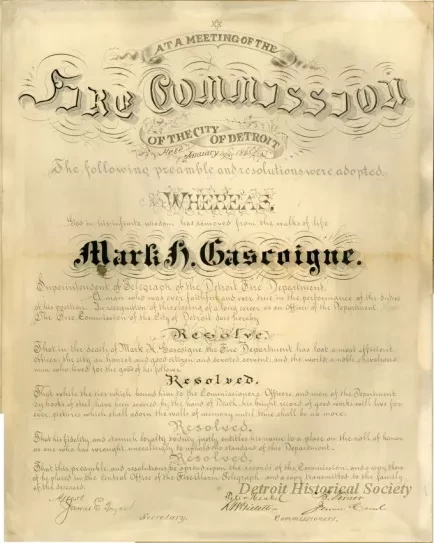 AT A MEETING OF THE
FIRE COMMISSION
OF THE CITY OF DETROIT
Held January
The following preamble and resolutions were adopted.
WHEREAS,
God in his infinite wisdom has removed from the walks of life
Mark H. Gascoigne.
Superintendent of Telegraph of the Detroit Fire Department.
A man who was ever faithful and ever true in the performance of the duties
of his position. In recognition of this closing of a long career as an Officer of the Department
The Fire Commission of the City of Detroit does hereby
Resolve:
That in the death of Mark H. Gascoigne the Fire Department has lost a most efficient
officer, the city an honest and good citizen and devoted servant, and the world a noble chivalrous
man who lived for the good of his fellows.
Resolved.
That while the ties which bound him to the Commissioners, Officers, and men of the Department
as hooks of steel have been severed by the hand of Death, his bright record of good works will live for-
ever, pictures which shall adorn the walls of memory until time shall be no more.
Resolved.
That his fidelity and staunch loyalty to duty justly entitles his name to a place on the roll of honor
as one who has wrought unceasingly to uphold the standard of this Department.
Resolved.
That this preamble and resolutions be spread upon the records of the Commission, and a copy there-
of be placed in the Central Office of the Fire Alarm Telegraph and a copy transmitted to the family
of the deceased.
Attest
James E.
Secretary.
Commissioners.
Detroit Historical Society